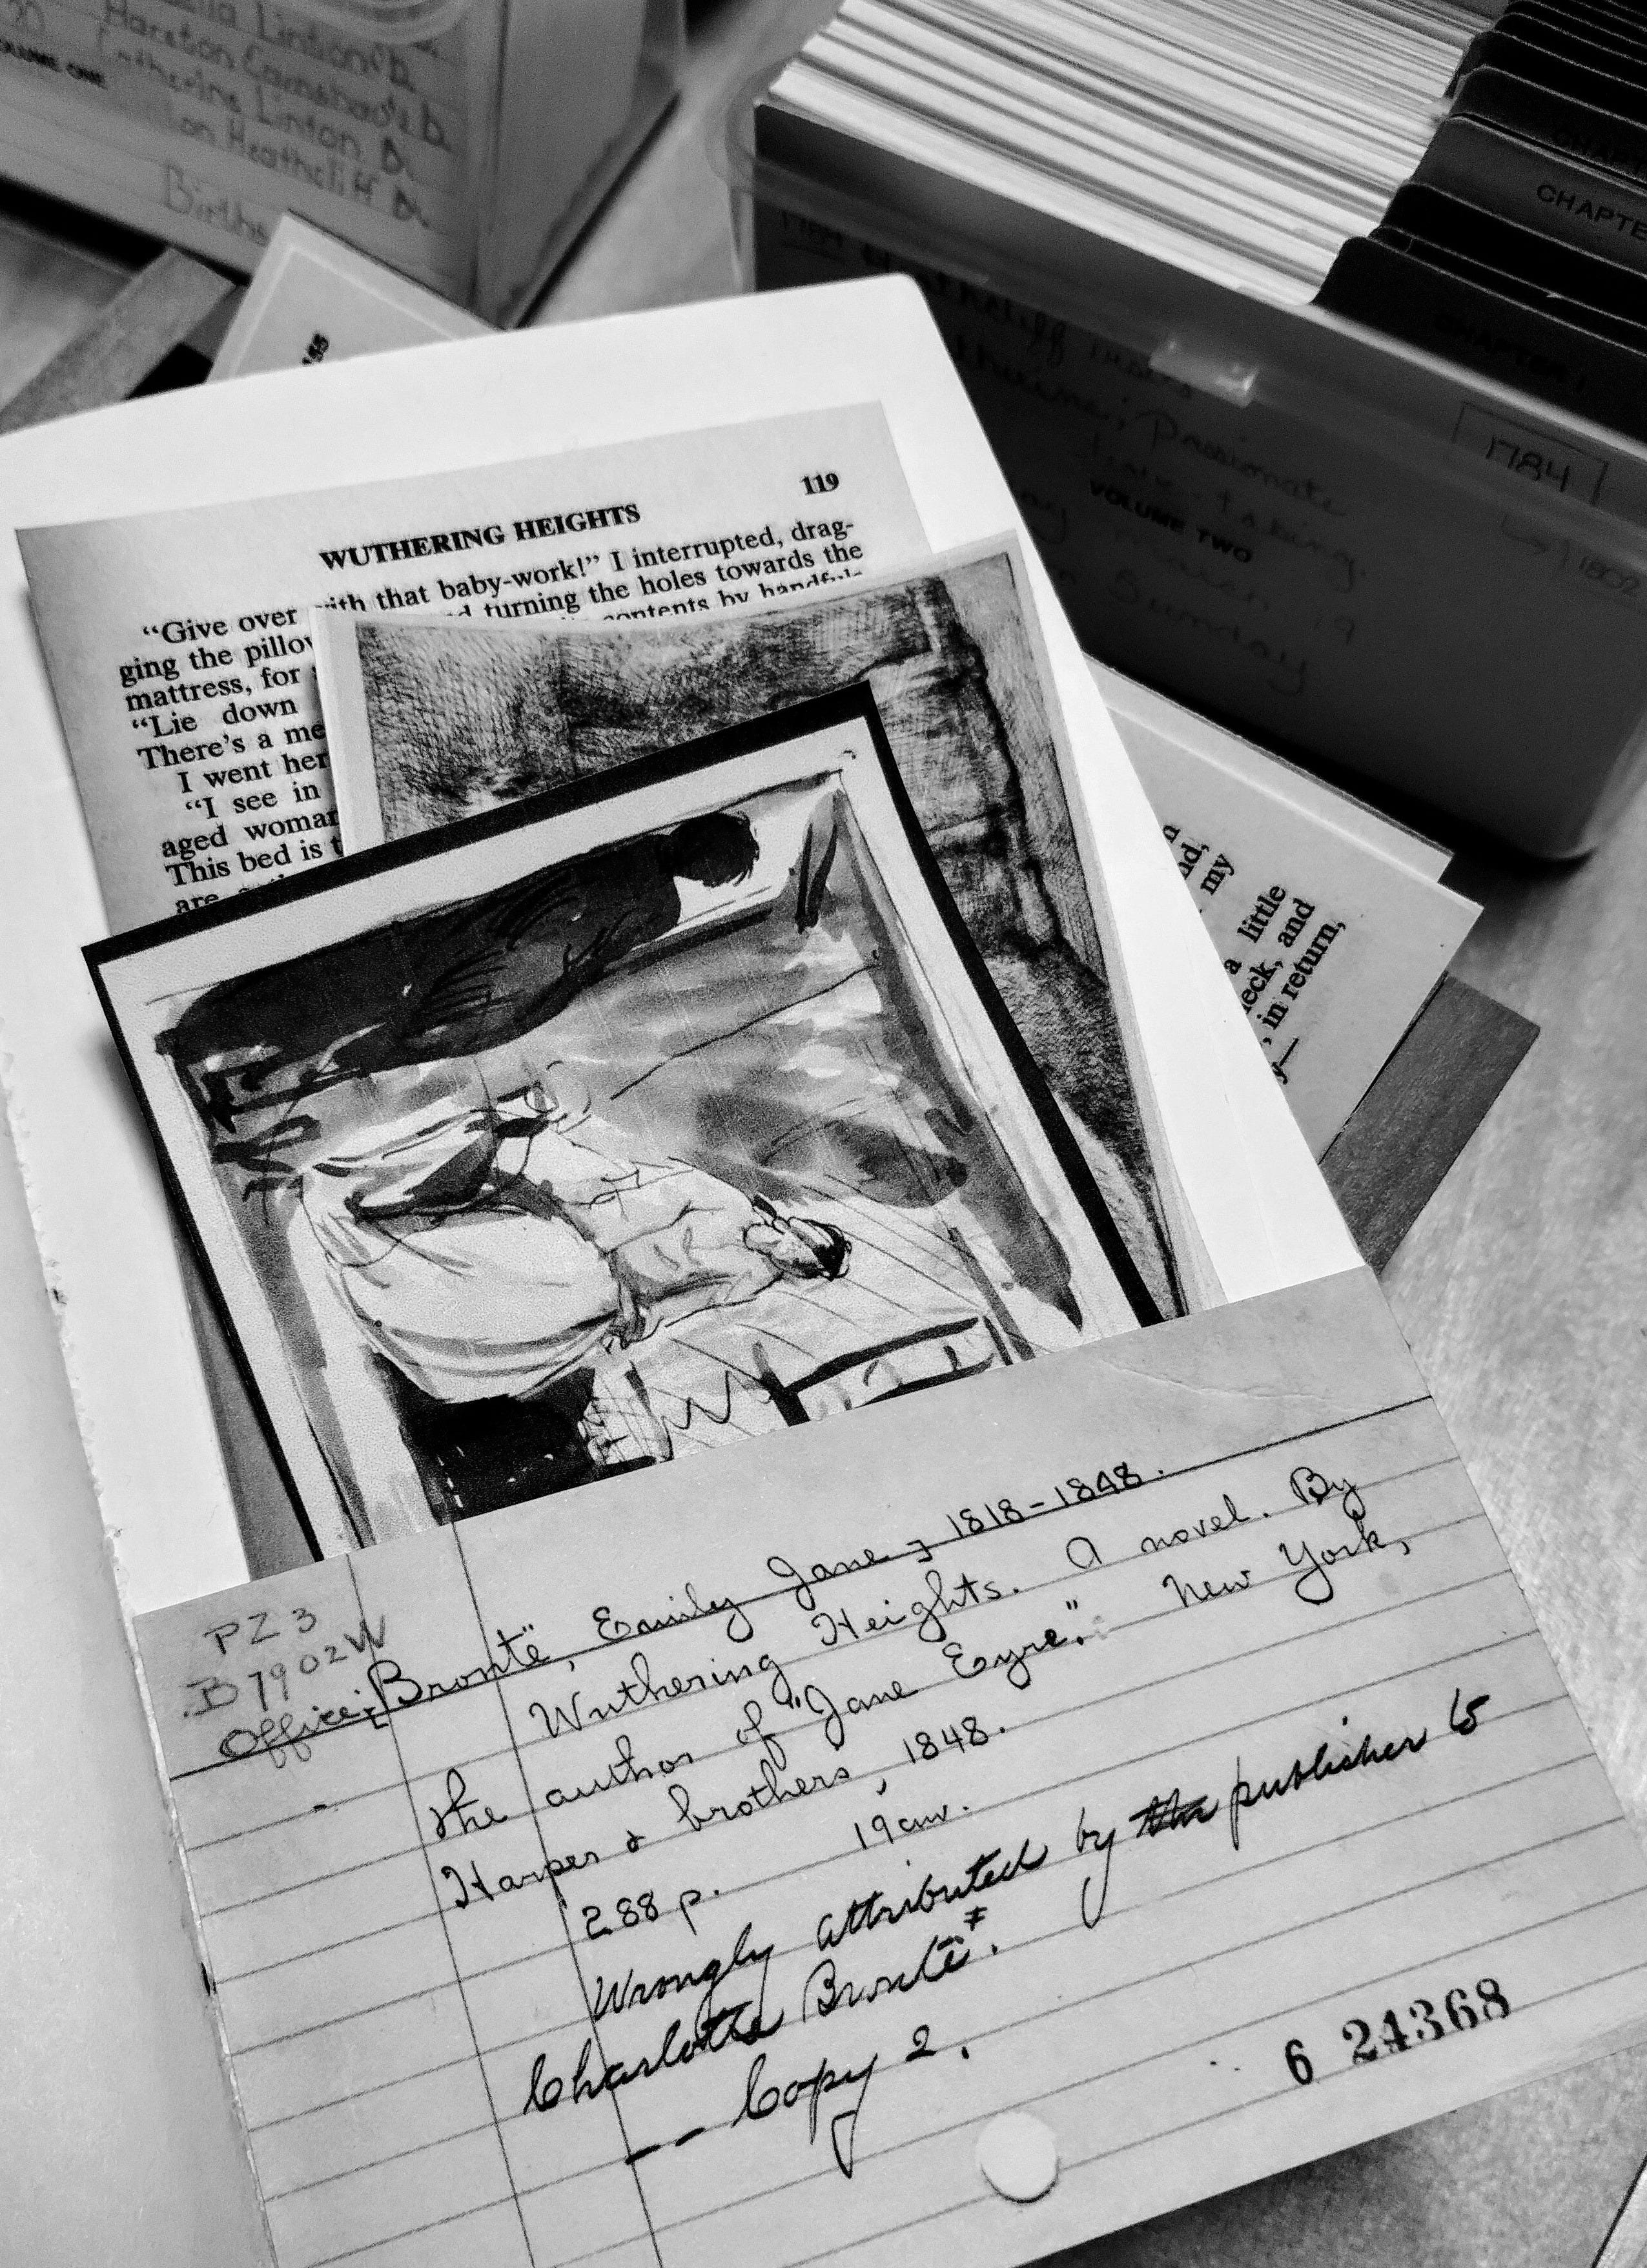 Linton b.
Hareton Earnshaw b.
Catherine Linton b.
on Heathcliff b.
VOLUME ONE
Births
CHAPTE
CHAPTER I
1784
VOLUME TWO
1802
passionate
Sunday
119
WUTHERING HEIGHTS
“Give over with that baby-work!” I interrupted, drag-
ging the pillow turning the holes towards the
mattress, for contents by handfuls
“Lie down
There’s a me
I went her
“I see in
aged woman
This bed is t
are
my
a little
eck, and
, in return,
y—
PZ3
.B7902W
Office:
Brontë, Emily Jane, 1818-1848.
Wuthering Heights. A novel. By
the author of "Jane Eyre." New York,
Harper & brothers, 1848.
288 p. 19 cm.
Wrongly attributed by the publisher to
Charlotte Brontë.
-- Copy 2.
6 24368